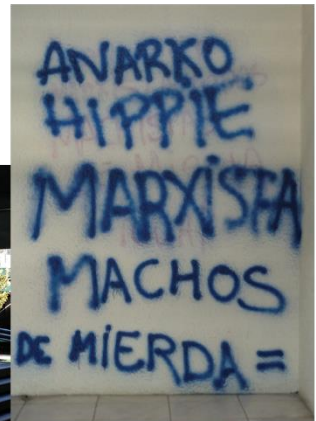 ANARKO
HIPPIE
MARXISTA
MACHOS
DE MIERDA =